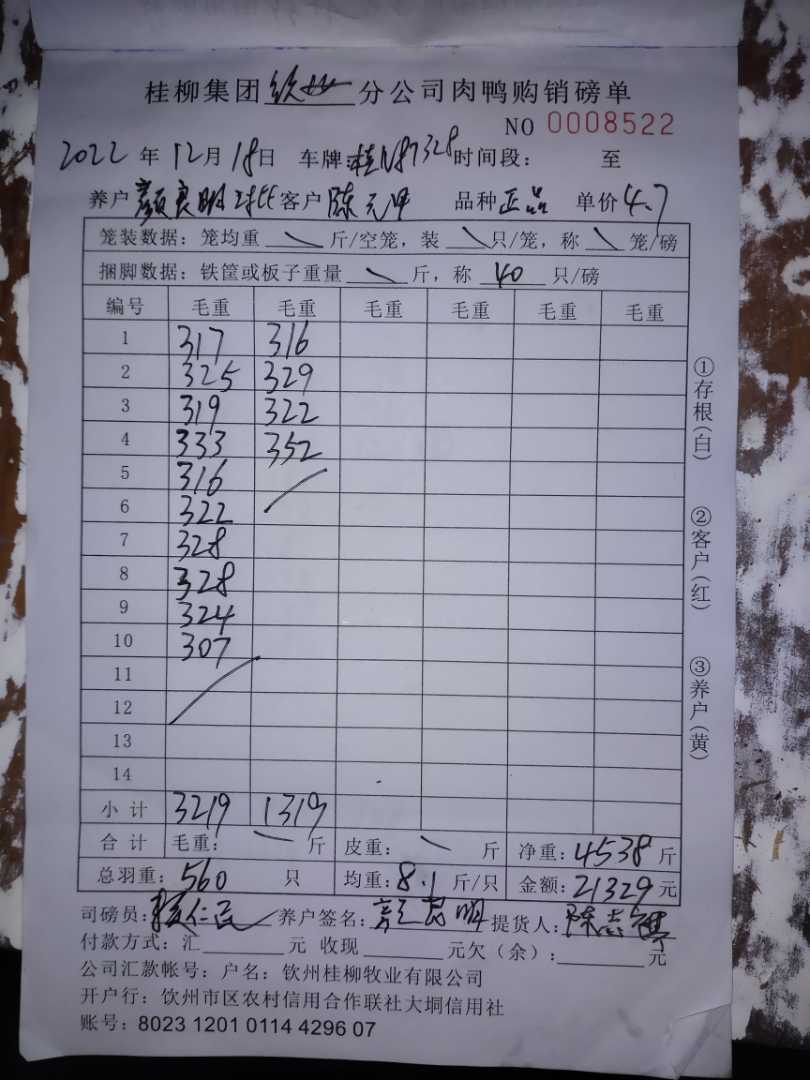 桂柳集团钦州分公司肉鸭购销磅单
NO 0008522
2022年12月18日 车牌桂N87328时间段： 至
养户颜良明 客户陈元甲 品种正品 单价4.7
笼装数据：笼均重＼斤/空笼，装＼只/笼，称＼笼/磅
捆脚数据：铁筐或板子重量＼斤，称 40 只/磅
编号 毛重 毛重 毛重 毛重 毛重 毛重
1 317 316
2 325 329
3 319 322
4 333 352
5 316
6 322
7 328
8 328
9 324
10 307
11
12
13
14
小计 3219 1319
合计 毛重：＼斤 皮重：＼斤 净重：4538斤
总羽重：560只 均重：8.1斤/只 金额：21329元
司磅员： 养户签名： 提货人：
付款方式：汇 元 收现 元欠（余）： 元
公司汇款帐号：户名：钦州桂柳牧业有限公司
开户行：钦州市区农村信用合作联社大垌信用社
账号：8023 1201 0114 4296 07
①存根(白)
②客户(红)
③养户(黄)